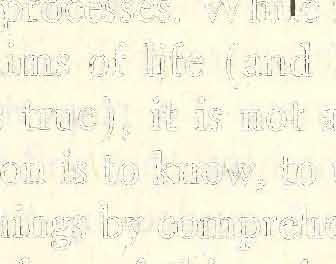 processes. Whil
ims of life (and
true), it is not a
on is to know, to
ings by comprehe